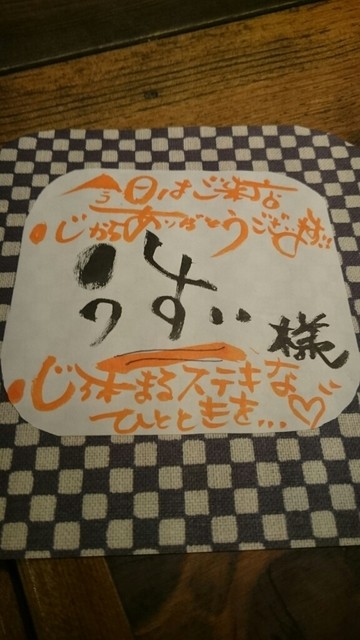 今日はご来店
心からありがとうございます!!
うすい 様
心休まるステキな
ひとときを...♡